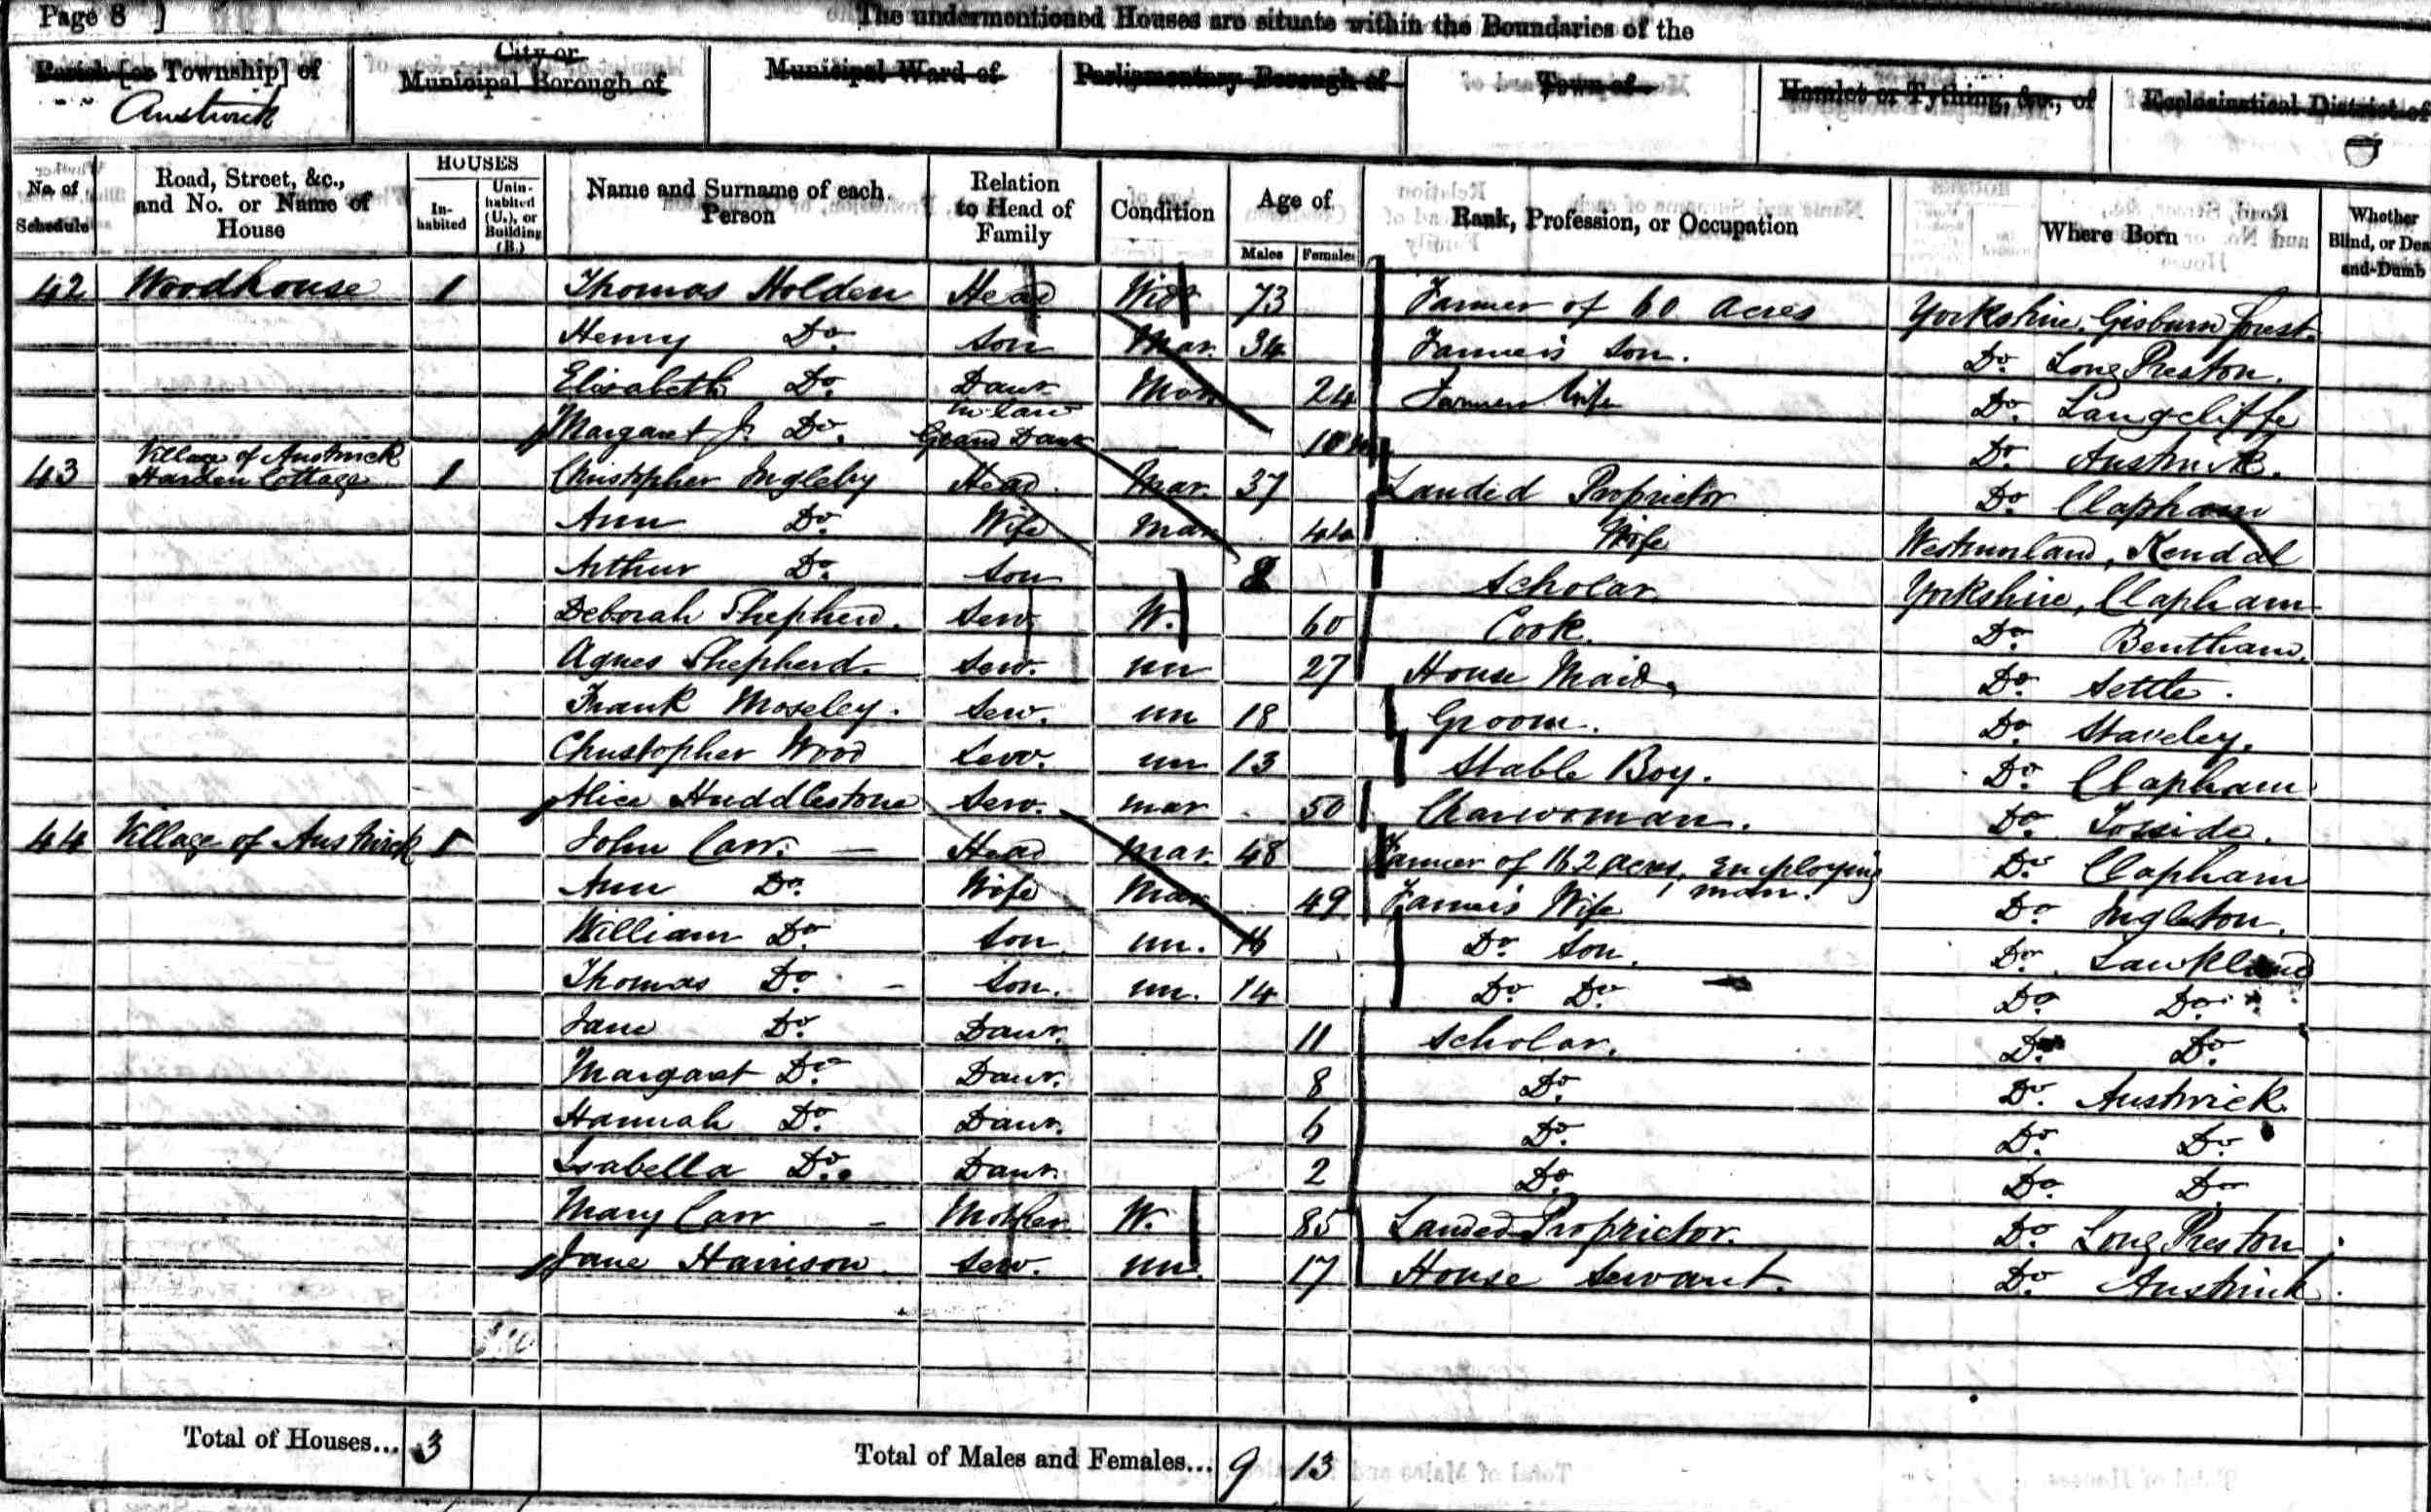 Page 8 ]
The undermentioned Houses are situate within the Boundaries of the
Parish [or Township] of
Austwick
City or
Municipal Borough of
Municipal Ward of
Parliamentary Borough of
Town of
Hamlet or Tything, &c., of
Ecclesiastical District of
No. of Schedule
Road, Street, &c., and No. or Name of House
HOUSES
In-habited
Unin-habited (U.), or Building (B.)
Name and Surname of each Person
Relation to Head of Family
Condition
Age of
Males
Females
Rank, Profession, or Occupation
Where Born
Whether Blind, or Deaf-and-Dumb
42 Woodhouse 1 Thomas Holden Head Widr 73 Farmer of 60 acres Yorkshire, Gisburn forest.
Henry Do. Son Mar. 34 Farmer's Son. Do. Long Preston.
Elizabeth Do. Daur in law Mar. 24 Farmers Wife Do. Langcliffe
Margaret J. Do. Grand Daur — 10 m Do. Austwick.
43 Village of Austwick Harden Cottage 1 Christopher Ingleby Head. Mar. 37 Landed Proprietor Do. Clapham
Ann Do. Wife Mar 44 Wife Westmorland, Kendal
Arthur Do. Son 8 Scholar Yorkshire, Clapham
Deborah Shepherd. Serv. W. 60 Cook. Do. Bentham.
Agnes Shepherd. Serv. un 27 House Maid. Do. Settle.
Frank Moseley. Serv. un 18 Groom. Do. Staveley.
Christopher Wood Serv. un 13 Stable Boy. Do. Clapham
Alice Huddlestone Serv. mar 50 Charwoman. Do. Tosside.
44 Village of Austwick 1 John Carr. — Head Mar. 48 Farmer of 162 acres, employing 1 man. Do. Clapham
Ann Do. Wife Mar 49 Farmer's Wife Do. Ingleton.
William Do. Son un. 16 Do. Son. Do. Lawkland
Thomas Do. - Son. un. 14 Do. Do. Do. Do.
Jane Do. Daur. 11 Scholar. Do. Do.
Margaret Do. Daur. 8 Do. Do. Austwick.
Hannah Do. Daur. 6 Do. Do. Do.
Isabella Do. Daur. 2 Do. Do. Do.
Mary Carr - Mother W. 85 Landed Proprietor. Do. Long Preston
Jane Harrison. Serv. un. 17 House Servant. Do. Austwick.
Total of Houses... 3
Total of Males and Females... 9 13